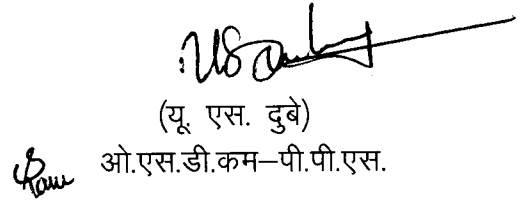 (यू. एस. दुबे)
ओ.एस.डी.कम–पी.पी.एस.